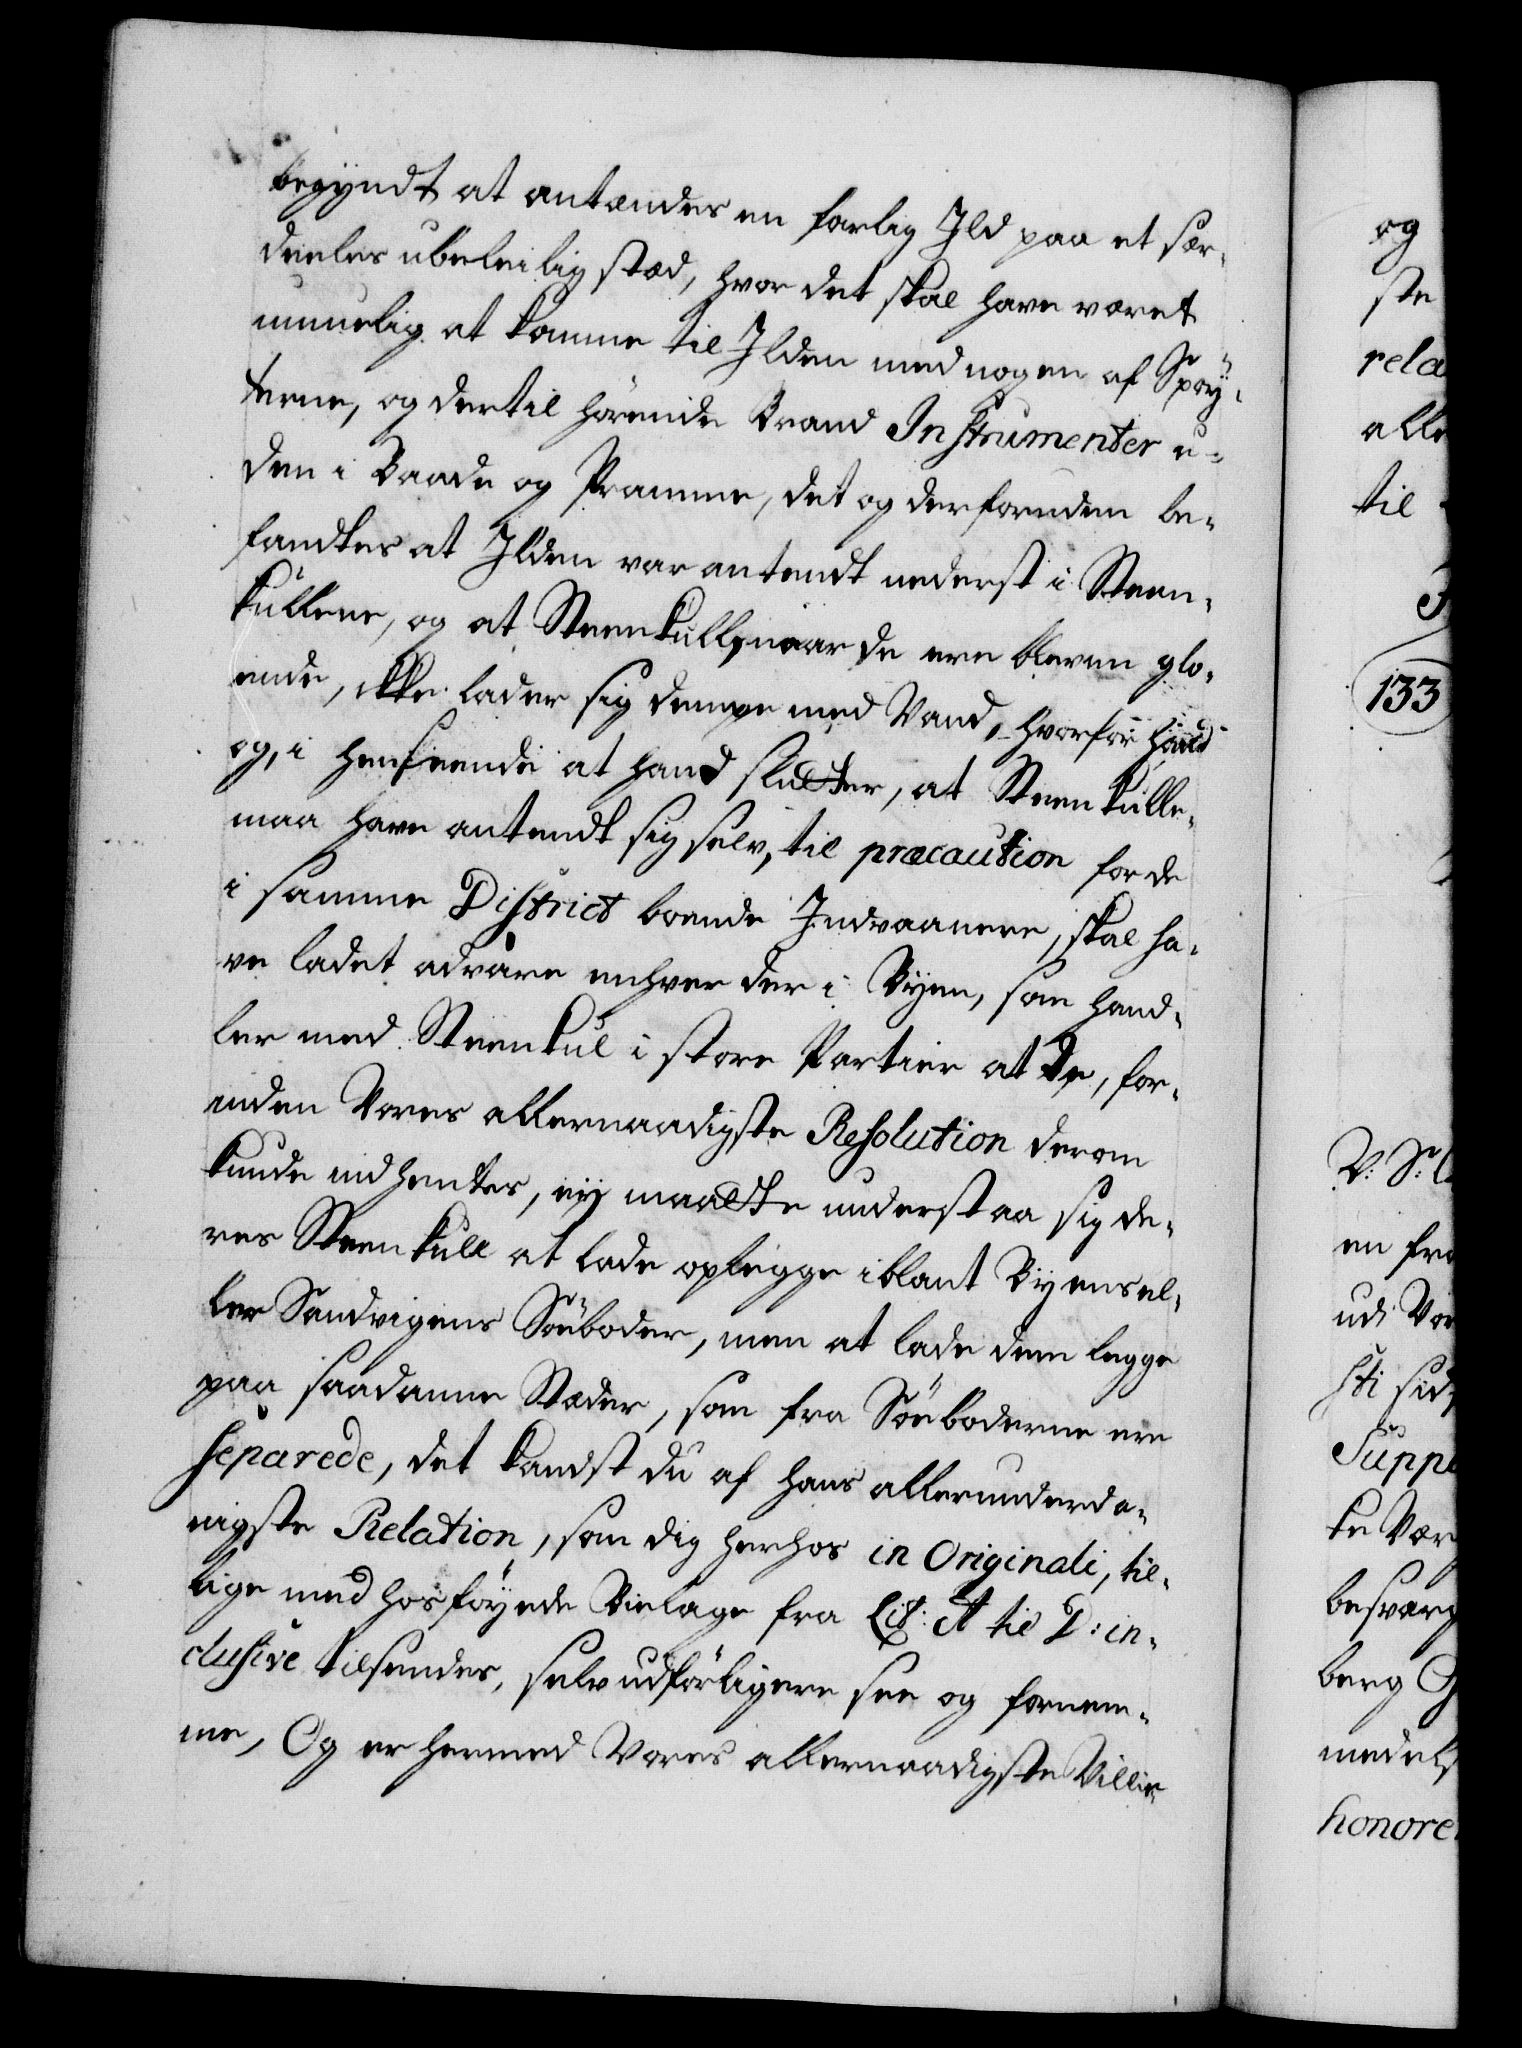 begyndt at antændes en farlig Ild paa et sær-
deeles ubeleilig stæd, hvor det skal have været
umuelig at komme til Ilden med nogen af Spröÿ-
terne, og dertil hörende Brand Instrumenter u-
den i Baade og Pramme, det og derforuden be-
fandtes at Ilden var antendt nederst i Steen-
kullene, og at Steenkull, naar de ere bleven glo-
ende, ikke lader sig dempe med Vand, hvorfor hand
og, i henseende at hand slutter, at Steenkulle
maa have antendt sig selv, til præcaution for de
i samme District boende Indvaanere, skal ha-
ve ladet advare enhver der i Byen, som hand-
ler med Steenkul i store Partier at de, for-
inden Vores allernaadigste Resolution derom
kunde indhentes, eÿ maatte understaa sig de-
res Steenkull at lade oplegge iblant Byens el-
ler Sandvigens Söeboder, men at lade dem legge
paa saadanne Stæder, som fra Söeboderne ere
separede, det kandst du af hans allerunderda-
nigste Relation, som dig herhos in Originali, til-
lige med hosföÿede Bielage fra Lit: A til D: in-
clusive tilsendes, selv udförligere see og fornem-
me, Og er hermed Vores allernaadigste Villie
og
ste
rela
alle
til
133
V: S: l
en fra
udi Vor
sti sid
Suppl
te Vær
besværg
berg G
medelst
honore